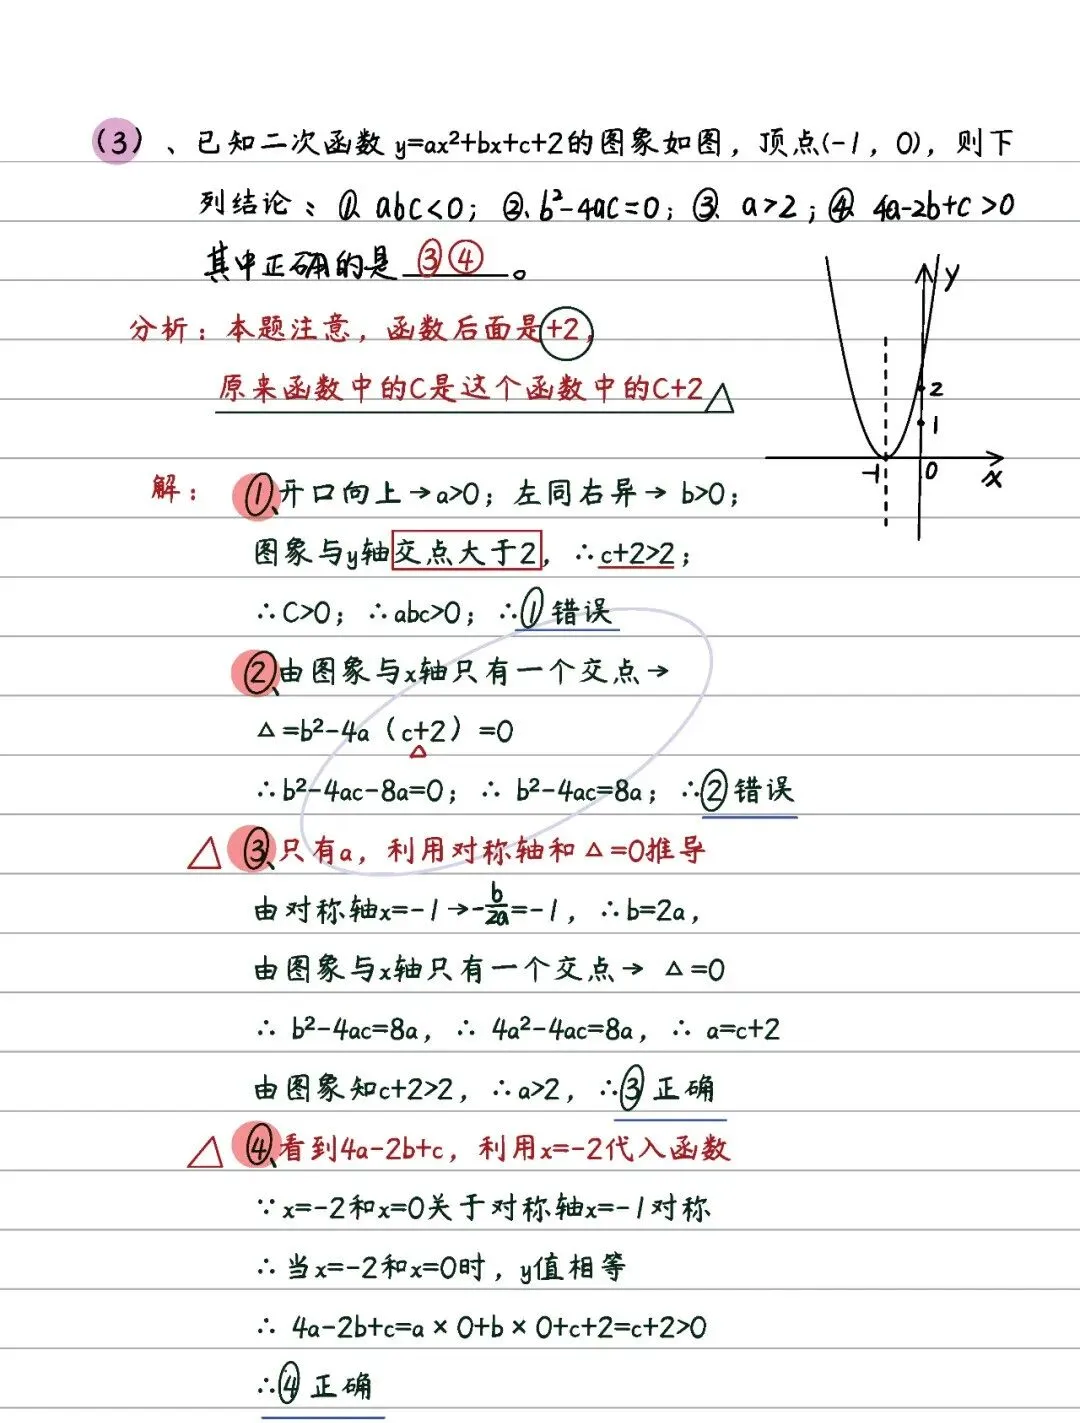 (3)、已知二次函数 y=ax²+bx+c+2的图象如图，顶点(-1，0)，则下
列结论：①、abc<0；②、b²-4ac=0；③、a>2；④、4a-2b+c>0
其中正确的是 ③④ 。
分析：本题注意，函数后面是+2，
原来函数中的C是这个函数中的C+2△
y
2
1
-1
0
x
解：①、开口向上→a>0；左同右异→ b>0；
图象与y轴交点大于2，∴c+2>2；
∴C>0；∴abc>0；∴①错误
②、由图象与x轴只有一个交点→
△=b²-4a（c+2）=0
∴b²-4ac-8a=0；∴ b²-4ac=8a；∴②错误
△ ③、只有a，利用对称轴和△=0推导
由对称轴x=-1→-b/2a=-1，∴b=2a，
由图象与x轴只有一个交点→ △=0
∴ b²-4ac=8a，∴ 4a²-4ac=8a，∴ a=c+2
由图象知c+2>2，∴a>2，∴③正确
△ ④、看到4a-2b+c，利用x=-2代入函数
∵x=-2和x=0关于对称轴x=-1对称
∴当x=-2和x=0时，y值相等
∴ 4a-2b+c=a×0+b×0+c+2=c+2>0
∴④正确